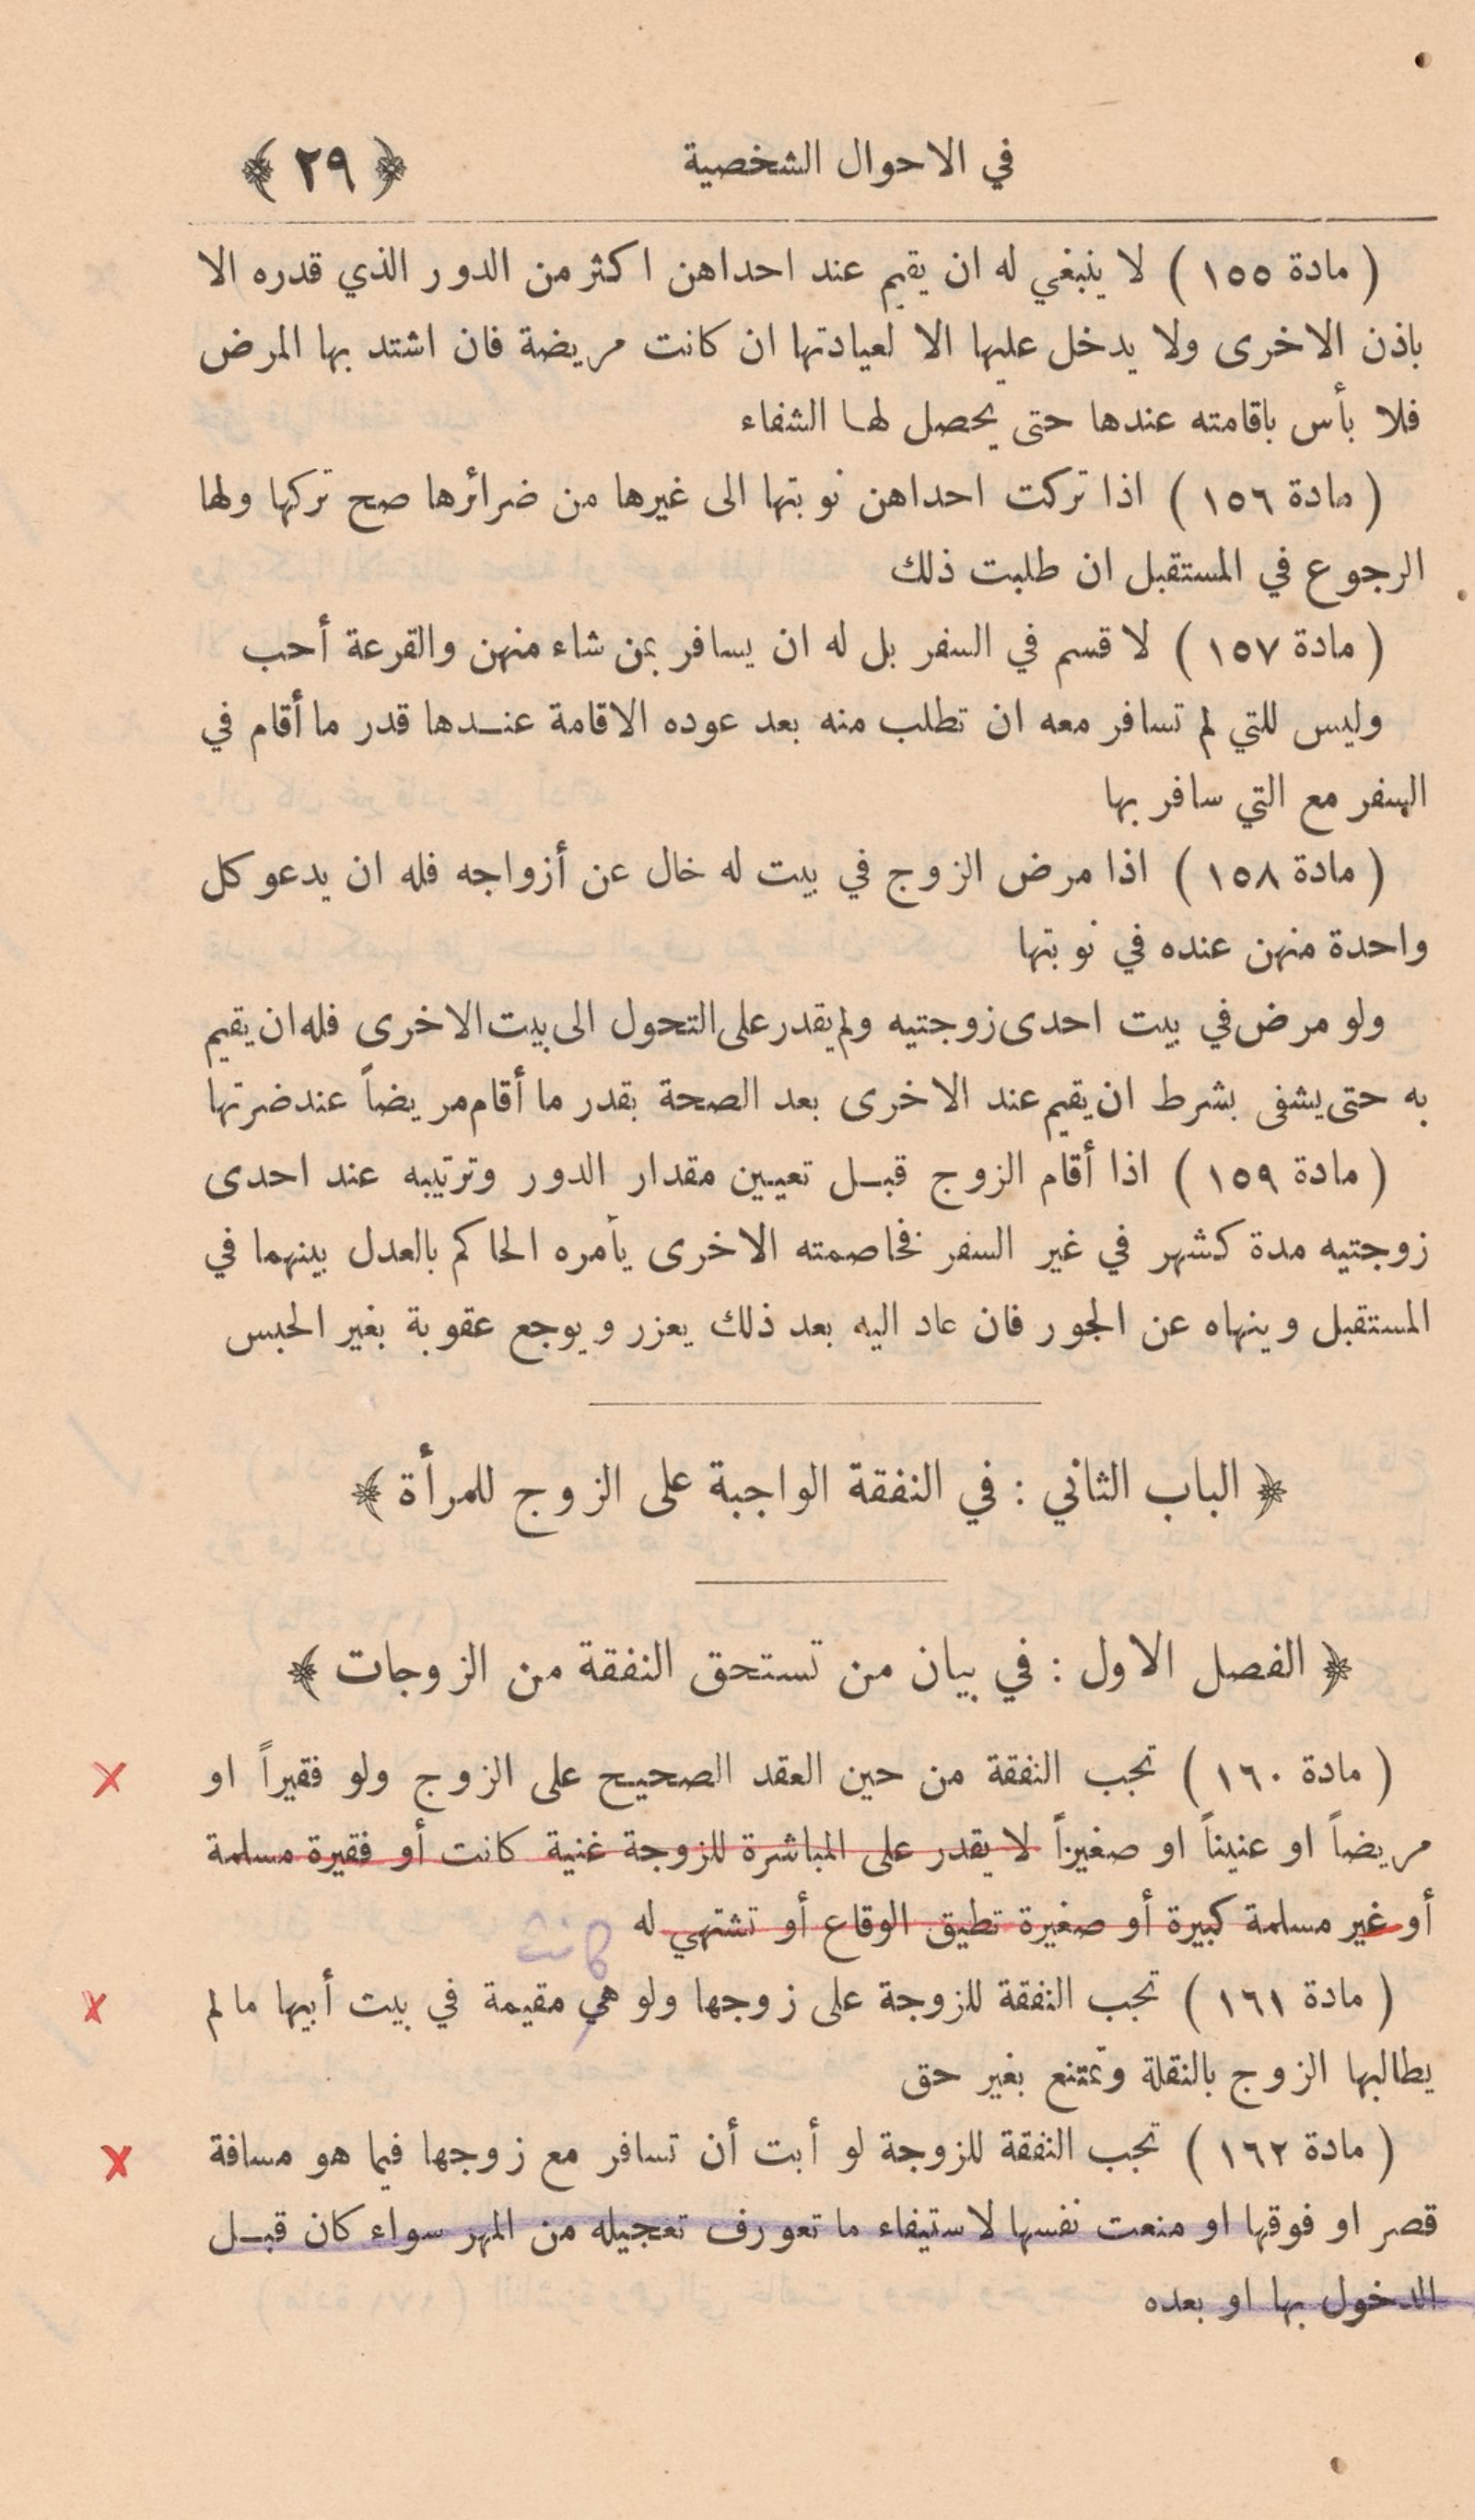 في الاحوال الشخصية ﴿ ٢٩ ﴾
( مادة ١٥٥ ) لا ينبغي له ان يقيم عند احداهن اكثر من الدور الذي قدره الا
باذن الاخرى ولا يدخل عليها الا لعيادتها ان كانت مريضة فان اشتد بها المرض
فلا بأس باقامته عندها حتى يحصل لها الشفاء
( مادة ١٥٦ ) اذا تركت احداهن نوبتها الى غيرها من ضرائرها صح تركها ولها
الرجوع في المستقبل ان طلبت ذلك
( مادة ١٥٧ ) لا قسم في السفر بل له ان يسافر بمن شاء منهن والقرعة أحب
وليس للتي لم تسافر معه ان تطلب منه بعد عوده الاقامة عندها قدر ما أقام في
السفر مع التي سافر بها
( مادة ١٥٨ ) اذا مرض الزوج في بيت له خال عن أزواجه فله ان يدعو كل
واحدة منهن عنده في نوبتها
ولو مرض في بيت احدى زوجتيه ولم يقدر على التحول الى بيت الاخرى فله ان يقيم
به حتى يشفى بشرط ان يقيم عند الاخرى بعد الصحة بقدر ما أقام مريضاً عند ضرتها
( مادة ١٥٩ ) اذا أقام الزوج قبل تعيين مقدار الدور وترتيبه عند احدى
زوجتيه مدة كشهر في غير السفر فخاصمته الاخرى يأمره الحاكم بالعدل بينهما في
المستقبل وينهاه عن الجور فان عاد اليه بعد ذلك يعزر ويوجع عقوبة بغير الحبس
﴿ الباب الثاني : في النفقة الواجبة على الزوج للمرأة ﴾
﴿ الفصل الاول : في بيان من تستحق النفقة من الزوجات ﴾
( مادة ١٦٠ ) تجب النفقة من حين العقد الصحيح على الزوج ولو فقيراً او
مريضاً او عنيناً او صغيراً لا يقدر على المباشرة للزوجة غنية كانت أو فقيرة مسلمة
أو غير مسلمة كبيرة أو صغيرة تطيق الوقاع أو تشتهي له
( مادة ١٦١ ) تجب النفقة للزوجة على زوجها ولو هي مقيمة في بيت أبيها ما لم
يطالبها الزوج بالنقلة وتمتنع بغير حق
( مادة ١٦٢ ) تجب النفقة للزوجة لو أبت أن تسافر مع زوجها فيما هو مسافة
قصر او فوقها او منعت نفسها لاستيفاء ما تعورف تعجيله من المهر سواء كان قبل
الدخول بها او بعده